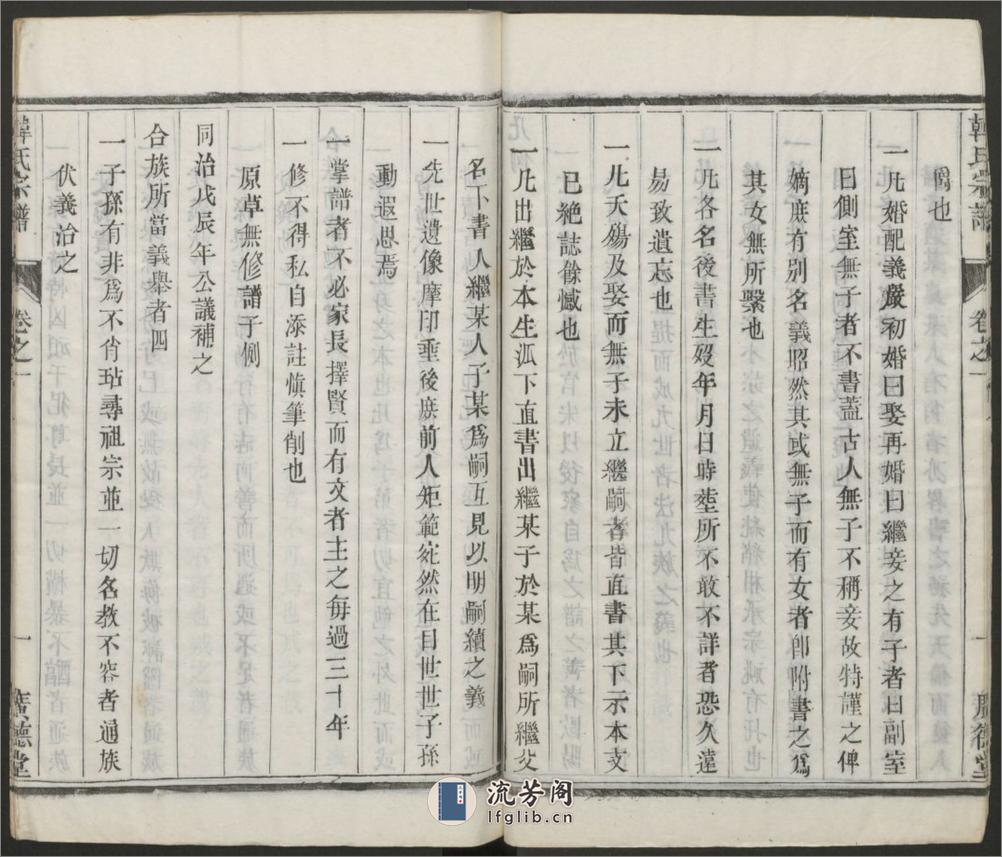 韓氏宗譜
卷之一
一
廣德堂
僞也
一凡婚配義嚴初婚曰娶再婚曰繼妾之有子者曰副室
曰側室無子者不書葢古人無子不稱妾故特謹之俾
嫡庶有別名義昭然其或無子而有女者卽附書之爲
其女無所繫也
一凡各名後書生歿年月日時塟所不敢不詳者恐久遠
易致遺忘也
一凡夭殤及娶而無子未立繼嗣者皆直書其下示本支
巳絶誌餘憾也
一凡出繼於本生派下直書出繼某于於某爲嗣所繼父
名下書人繼某人子某爲嗣互見以明嗣續之義
一先世遺像摩印垂後庶前人矩範宛然在目世世子孫
動遐思焉
一掌譜者不必家長擇賢而有文者主之每過三十年
一修不得私自添註愼筆削也
原草無修譜子侧
同治戊辰年公議補之
合族所當義舉者四
一子孫有非爲不肖玷尋祖宗並一切名教不容者通族
伏義治之
韓氏宗譜
卷之一
一
廣德堂
流芳阁
lfglib.cn